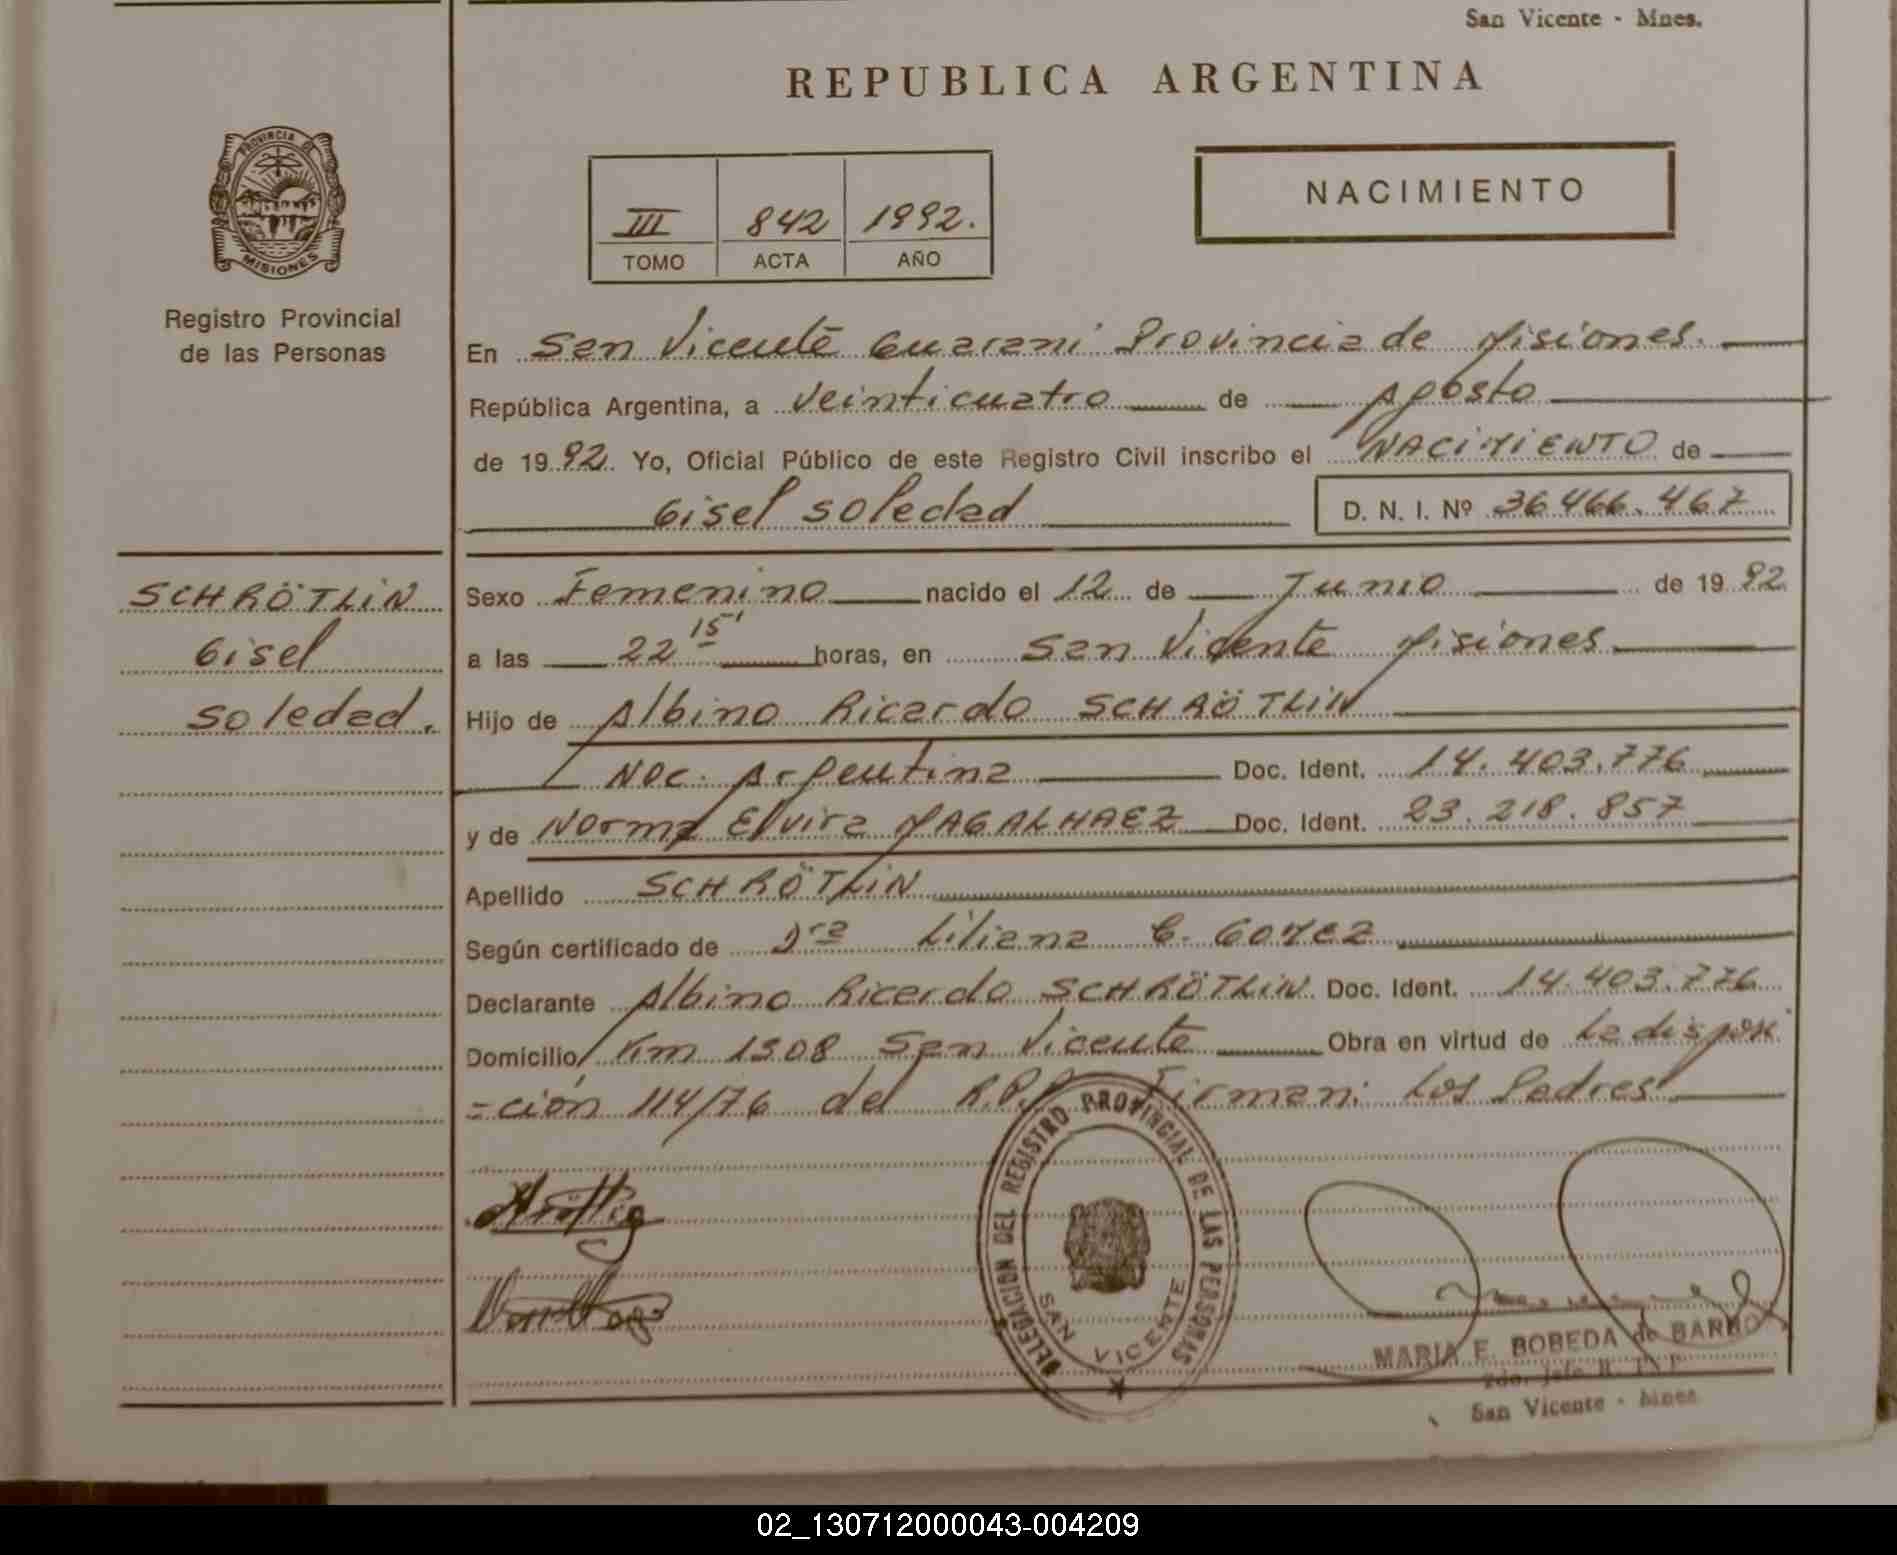 San Vicente - Mnes.
REPUBLICA ARGENTINA
PROVINCIA DE
MISIONES
Registro Provincial
de las Personas
III 842 1992.
TOMO ACTA AÑO
NACIMIENTO
En San Vicente Guaraní Provincia de Misiones.
República Argentina, a veinticuatro de Agosto
de 1992. Yo, Oficial Público de este Registro Civil inscribo el NACIMIENTO de
Gisel Soledad
D. N. I. Nº 36.466.467
SCHRÖTLIN
Gisel
Soledad.
Sexo Femenino nacido el 12 de Junio de 1992
a las 22 15' horas, en San Vicente Misiones
Hijo de Albino Ricardo SCHRÖTLIN
Nac. Argentina Doc. Ident. 14.403.776
y de Norma Elvira MAGALHAEZ Doc. Ident. 23.218.857
Apellido SCHRÖTLIN
Según certificado de Dra Liliana C. GOMEZ
Declarante Albino Ricardo SCHRÖTLIN Doc. Ident. 14.403.776
Domicilio Km 1308 San Vicente Obra en virtud de La disposi
=ción 114/76 del R.P.P. Firman: Los Padres
DELEGACION DEL REGISTRO PROVINCIAL DE LAS PERSONAS
SAN VICENTE
MARIA E. BOBEDA de BARRO
2do. Jefe R. P. P.
San Vicente - Mnes.
02_130712000043-004209